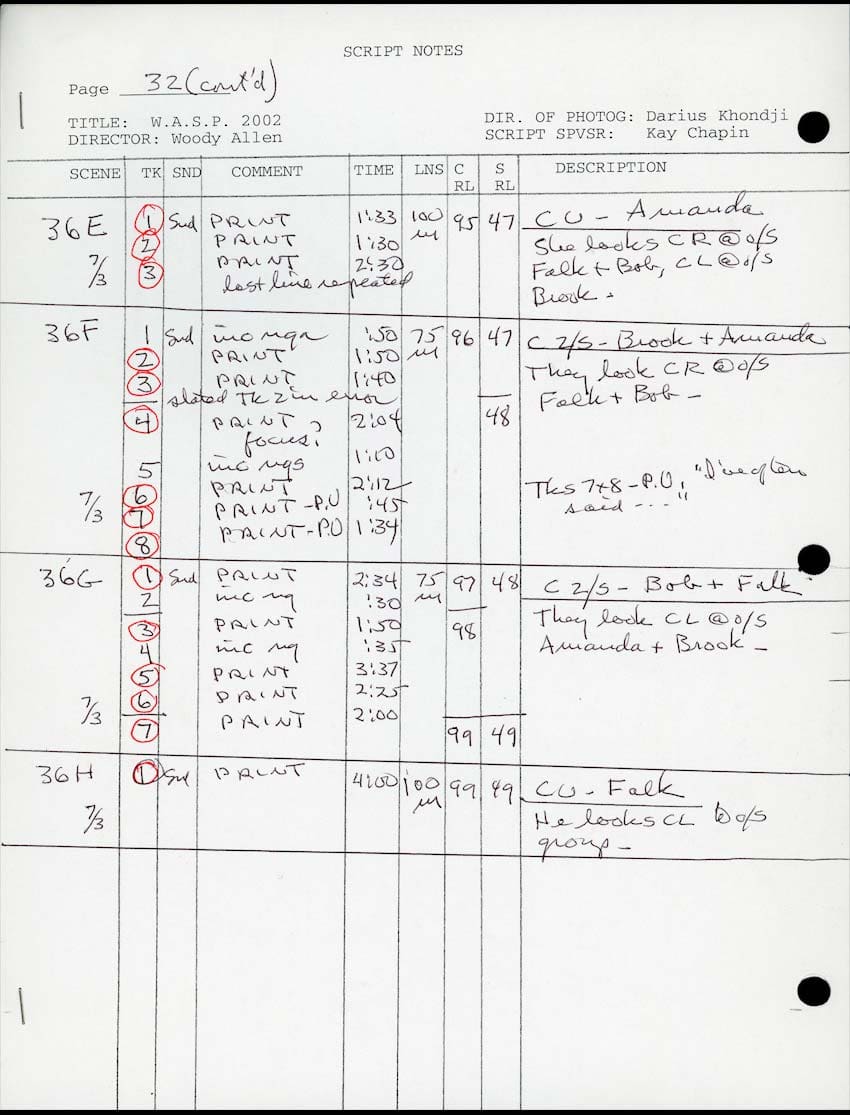 SCRIPT NOTES
Page 32 (cont'd)
TITLE: W.A.S.P. 2002 DIR. OF PHOTOG: Darius Khondji
DIRECTOR: Woody Allen SCRIPT SPVSR: Kay Chapin
SCENE TK SND COMMENT TIME LNS C RL S RL DESCRIPTION
36E 1 Snd PRINT 1:33 100 95 47 CU - Amanda
2 PRINT 1:30 m She looks CR @ o/s
7/3 3 PRINT 2:30 Falk + Bob, CL @ o/s
last line repeated Brook.
36F 1 Snd inc ngs :50 75 96 47 C 2/S - Brook + Amanda
2 PRINT 1:50 m They look CR @ o/s
3 PRINT 1:40 Falk + Bob -
slated Tk 2 in error
4 PRINT 2:04 48
focus?
5 inc ngs 1:10
7/3 6 PRINT 2:12 Tks 7+8 - P.U., "I've often
7 PRINT - P.U :45 said ---"
8 PRINT - P.U 1:34
36G 1 Snd PRINT 2:34 75 97 48 C 2/S - Bob + Falk
2 inc ng :30 m They look CL @ o/s
3 PRINT 1:50 98 Amanda + Brook -
4 inc ng :35
5 PRINT 3:37
7/3 6 PRINT 2:25
7 PRINT 2:00 99 49
36H 1 Snd PRINT 4:00 100 99 49 CU - Falk
7/3 m He looks CL @ o/s
group -